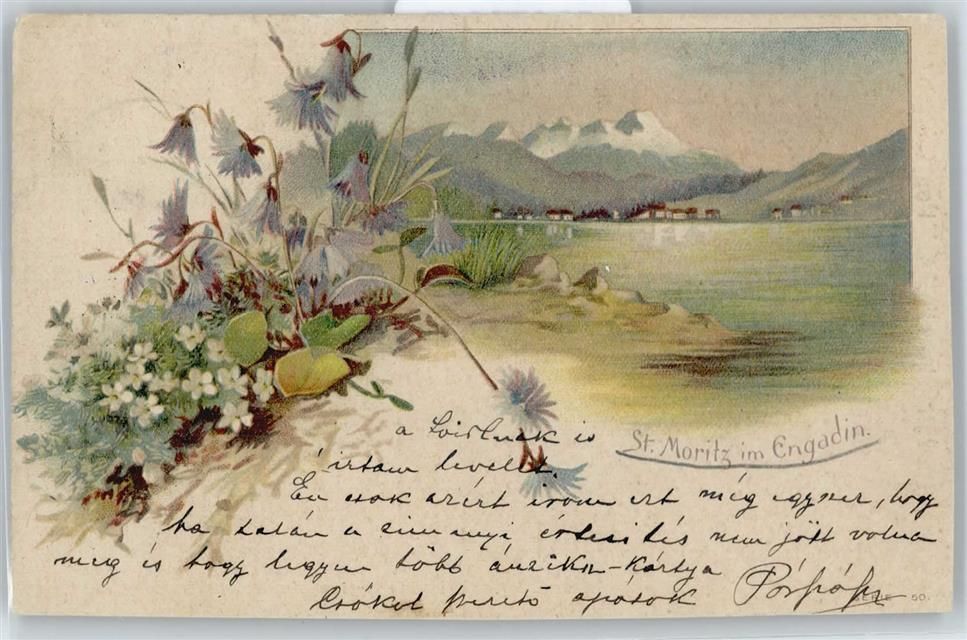 St. Moritz im Engadin.
a is
írtam levelet.
Én csak azért irom ezt még egyszer, hogy
ha talán a értesítés nem jött volna
meg és hogy legyen több ánzikn-kártya
Csókol szerető apátok
SERIE 50.